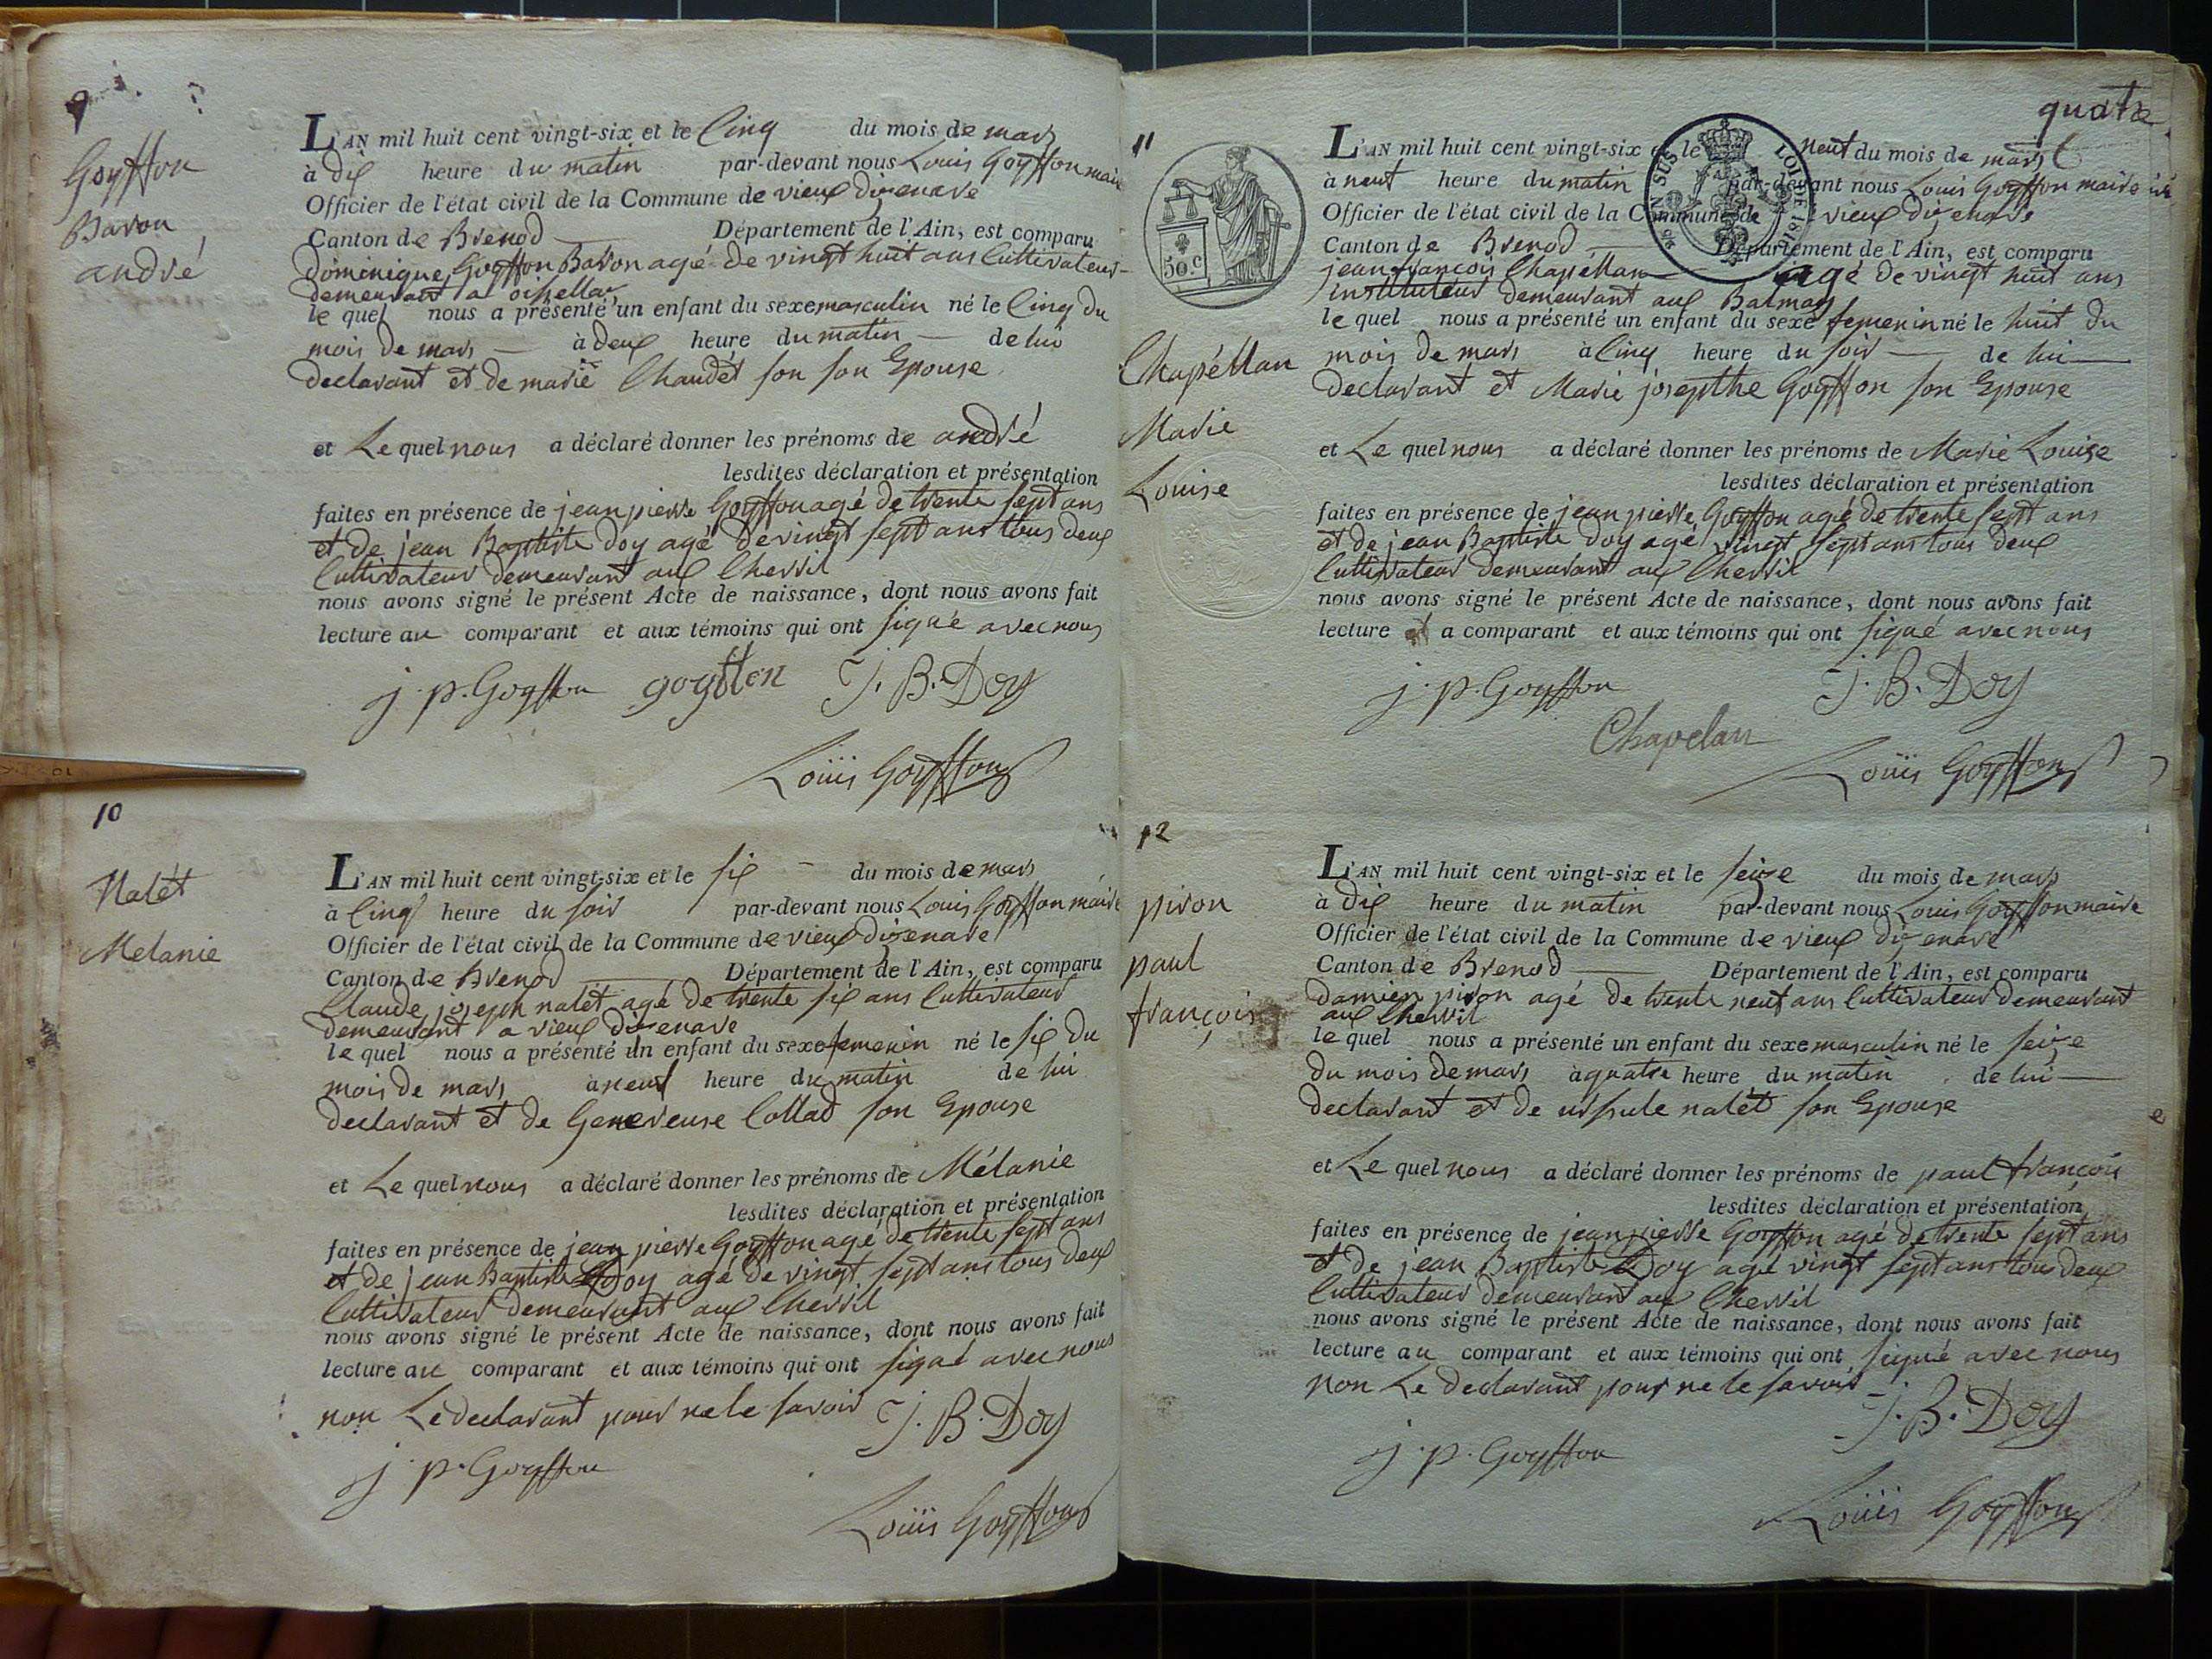 9
Goyffon
Baron
andré
L'AN mil huit cent vingt-six et le Cinq du mois de mars
à dix heure du matin par-devant nous Louis Goyffon maire
Officier de l'état civil de la Commune de vieux dizenave
Canton de Brenod Département de l'Ain, est comparu
dominique Goyffon Baron agé de vingt huit ans Cultivateur
demeurant a oissellaz
le quel nous a présenté un enfant du sexe masculin né le Cinq du
mois de mars à deux heure du matin de lui
declarant et de marie Chaudét son son Epouse
et Le quel nous a déclaré donner les prénoms de andré
lesdites déclaration et présentation
faites en présence de jean pierre Goyffon agé de trente sept ans
et de jean Baptiste doy agé de vingt sept ans tous deux
Cultivateur demeurant aux Chevril
nous avons signé le présent Acte de naissance, dont nous avons fait
lecture au comparant et aux témoins qui ont signé avec nous
j. p. Goyffon goyffon J. B. Doy
Louis Goyffon
10
Nalét
Melanie
L'AN mil huit cent vingt-six et le six du mois de mars
à Cinq heure du soir par-devant nous Louis Goyffon maire
Officier de l'état civil de la Commune de vieux dizenave
Canton de Brenod Département de l'Ain, est comparu
Claude joseph nalét agé de trente six ans Cultivateur
demeurant a vieux dizenave
le quel nous a présenté un enfant du sexe femenin né le six du
mois de mars a neuf heure du matin de lui
declarant et de Genereuse Collad son Epouse
et Le quel nous a déclaré donner les prénoms de Mélanie
lesdites déclaration et présentation
faites en présence de jean pierre Goyffon agé de trente sept ans
et de jean Baptiste Doy agé de vingt sept ans tous deux
Cultivateur demeurant aux Chevril
nous avons signé le présent Acte de naissance, dont nous avons fait
lecture au comparant et aux témoins qui ont signé avec nous
non Le declarant pour ne le savoir J. B. Doy
j. p. Goyffon
Louis Goyffon
quatre
11
50.c
Chapéllan
Marie
Louise
L'AN mil huit cent vingt-six et le neuf du mois de mars
SON SUS LOI DE 181
à neuf heure du matin par-devant nous Louis Goyffon maire
Officier de l'état civil de la Commune de vieux dizenave
Canton de Brenod Département de l'Ain, est comparu
jean françois Chapéllan agé de vingt huit ans
instituteur demeurant aux Balmay
le quel nous a présenté un enfant du sexe femenin né le huit du
mois de mars à Cinq heure du soir de lui
declarant et Marie josepthe Goyffon son Epouse
et Le quel nous a déclaré donner les prénoms de Marie Louise
lesdites déclaration et présentation
faites en présence de jean pierre Goyffon agé de trente sept ans
et de jean Baptiste doy agé vingt sept ans tous deux
Cultivateur demeurant aux Chevril
nous avons signé le présent Acte de naissance, dont nous avons fait
lecture a comparant et aux témoins qui ont signé avec nous
j. p. Goyffon J. B. Doy
Chapelan
Louis Goyffon
12
piron
paul
françois
L'AN mil huit cent vingt-six et le seize du mois de mars
à dix heure du matin par-devant nous Louis Goyffon maire
Officier de l'état civil de la Commune de vieux dizenave
Canton de Brenod Département de l'Ain, est comparu
damien piron agé de trente neuf ans Cultivateur demeurant
aux Chevril
le quel nous a présenté un enfant du sexe masculin né le seize
du mois de mars à quatre heure du matin de lui
declarant et de urssule nalét son Epouse
et Le quel nous a déclaré donner les prénoms de paul françois
lesdites déclaration et présentation
faites en présence de jean pierre Goyffon agé de trente sept ans
et de jean Baptiste Doy agé vingt sept ans tous deux
Cultivateur demeurant aux Chevril
nous avons signé le présent Acte de naissance, dont nous avons fait
lecture au comparant et aux témoins qui ont signé avec nous
non Le declarant pour ne le savoir J. B. Doy
j. p. Goyffon
Louis Goyffon